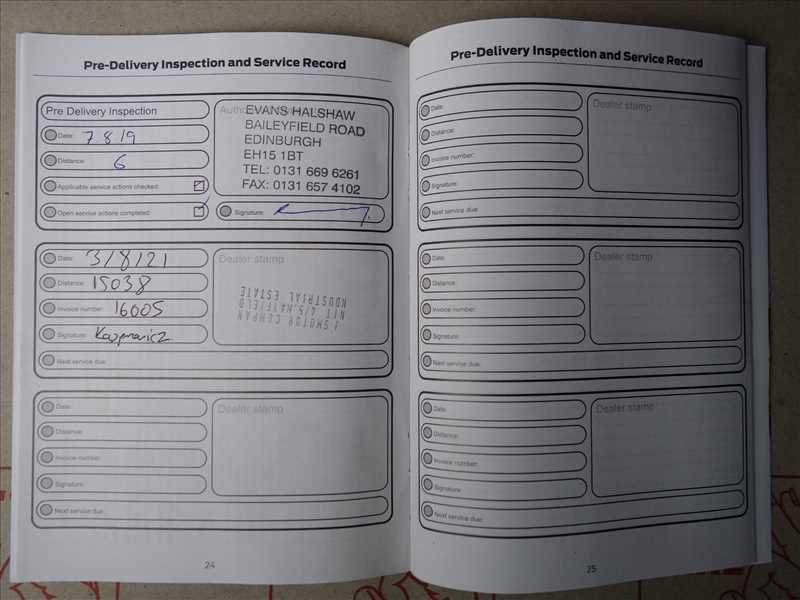 Pre-Delivery Inspection and Service Record
Pre Delivery Inspection
Date: 7 8 19
Distance: 6
Applicable service actions checked:
Open service actions completed:
EVANS HALSHAW
BAILEYFIELD ROAD
EDINBURGH
EH15 1BT
TEL: 0131 669 6261
FAX: 0131 657 4102
Signature:
Date: 3/8/21
Distance: 15038
Invoice number: 16005
Signature:
Next service due:
Dealer stamp
MOTOR COMPAN
NIT 4/5, HAYFIELD
NDUSTRIAL ESTATE
Date:
Distance:
Invoice number:
Signature:
Next service due:
Dealer stamp
24
Pre-Delivery Inspection and Service Record
Date:
Distance:
Invoice number:
Signature:
Next service due:
Dealer stamp
Date:
Distance:
Invoice number:
Signature:
Next service due:
Dealer stamp
Date:
Distance:
Invoice number:
Signature:
Next service due:
Dealer stamp
25